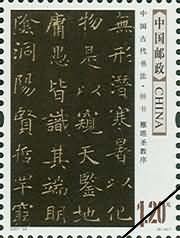 中国邮政
CHINA
中国古代书法·楷书 雁塔圣教序
無形潛寒暑以化
物是以窺天鑒地
庸愚皆識其端明
陰洞陽賢哲罕窮
1.20元